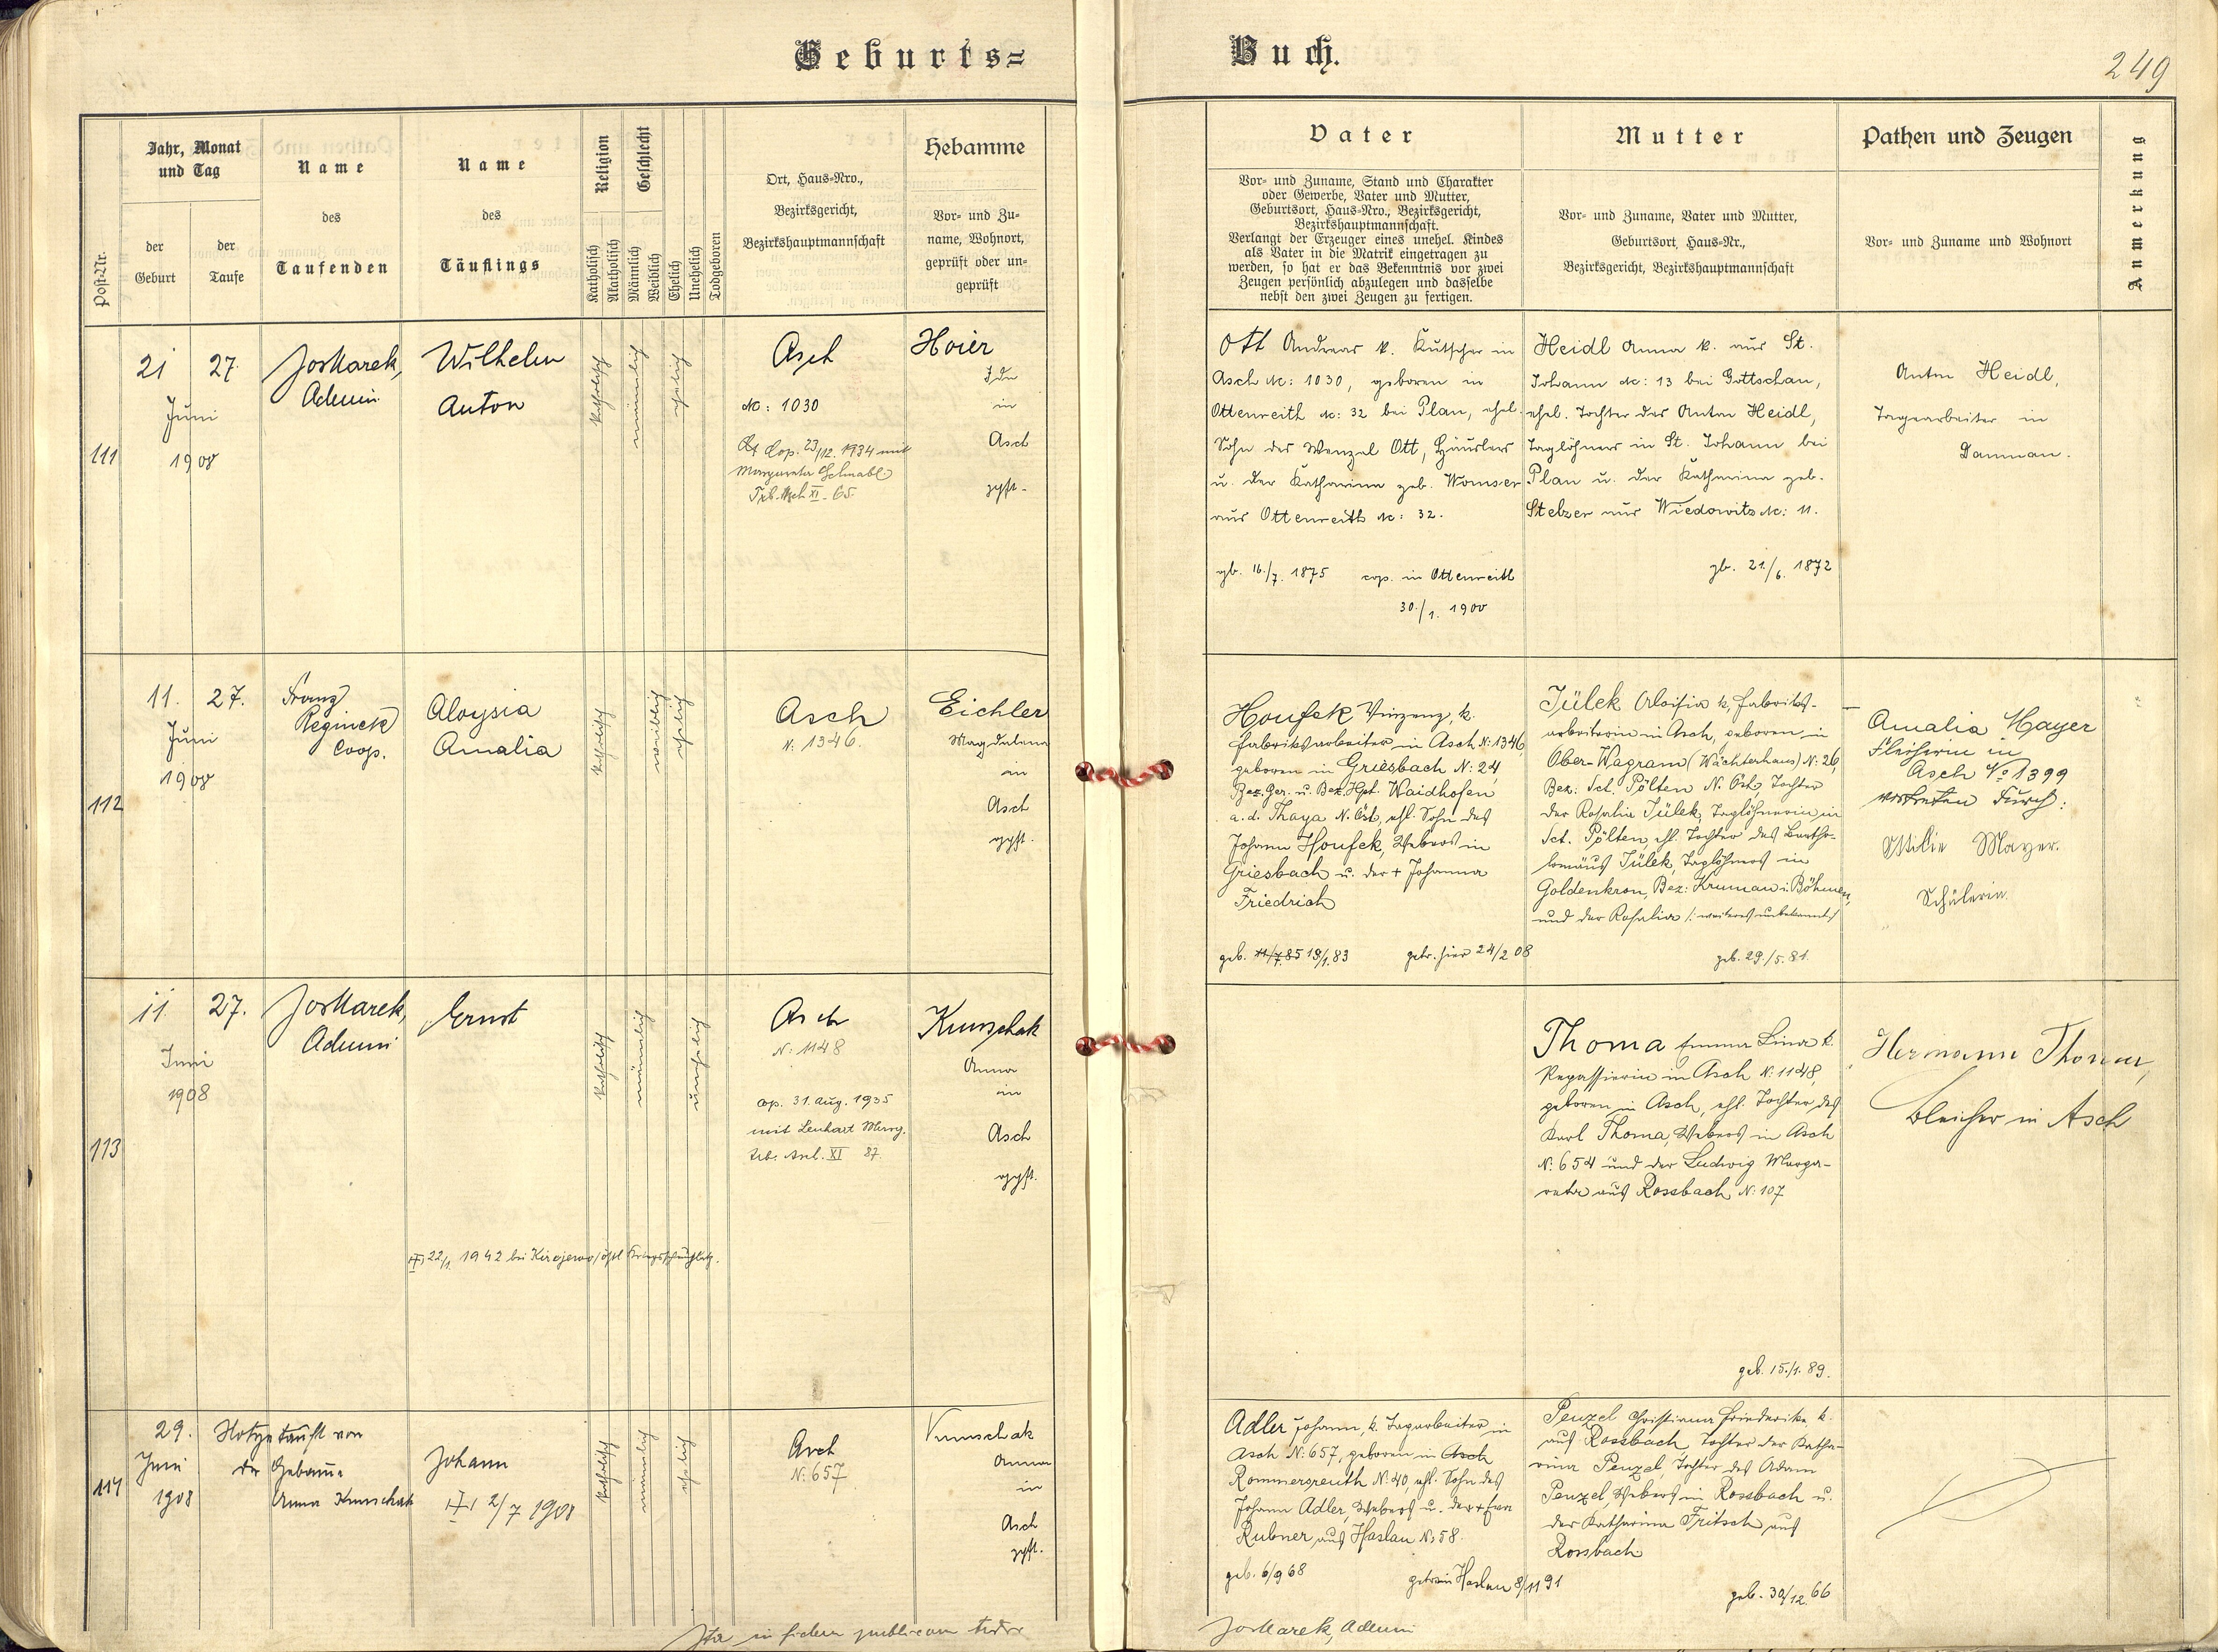 Geburts=
Buch.
249
Post-Nr.
Jahr, Monat
und Tag
der
Geburt
der
Taufe
Name
des
Taufenden
Name
des
Täuflings
Religion
Katholisch
Akatholisch
Geschlecht
Männlich
Weiblich
Ehelich
Unehelich
Todgeboren
Ort, Haus-Nro.,
Bezirksgericht,
Bezirkshauptmannschaft
Hebamme
Vor- und Zu-
name, Wohnort,
geprüft oder un-
geprüft
Vater
Vor- und Zuname, Stand und Charakter
oder Gewerbe, Vater und Mutter,
Geburtsort, Haus-Nro., Bezirksgericht,
Bezirkshauptmannschaft.
Verlangt der Erzeuger eines unehel. Kindes
als Vater in die Matrik eingetragen zu
werden, so hat er das Bekenntnis vor zwei
Zeugen persönlich abzulegen und dasselbe
nebst den zwei Zeugen zu fertigen.
Mutter
Vor- und Zuname, Vater und Mutter,
Geburtsort, Haus-Nr.,
Bezirksgericht, Bezirkshauptmannschaft
Pathen und Zeugen
Vor- und Zuname und Wohnort
Anmerkung
111
21 27.
Juni
1908
Jos Marek,
Admin.
Wilhelm
Anton
katholisch
männlich
ehelich
Asch
Nc: 1030
Cop. 23/12. 1934 mit
Margareta Schnabl
Trb. Asch XI - 65.
Hoier
Ida
in
Asch
gpft.
Ott Andreas k. Kutscher in
Asch Nc: 1030, geboren in
Ottenreith Nc: 32 bei Plan, ehel.
Sohn des Wenzel Ott, Häuslers
u. der Katharina geb. Womser
aus Ottenreith Nc: 32.
gb. 16./7. 1875 cop. in Ottenreith
30./1. 1900
Heidl Anna k. aus St.
Johann Nc: 13 bei Gottschau,
ehel. Tochter des Anton Heidl,
Taglöhners in St. Johann bei
Plan u. der Katharina geb.
Stelzer aus Wiedowitz Nc: 11.
gb. 21./6. 1872
Anton Heidl,
Tagearbeiter in
Damnau.
112
11. 27.
Juni
1908
Franz
Reginek
Coop.
Aloysia
Amalia
katholisch
weiblich
ehelich
Asch
N: 1346.
Eichler
Magdalena
in
Asch
gpft.
Houfek Vinzenz, k.
Fabriksarbeiter in Asch N: 1346,
geboren in Griesbach N: 24,
Bez. Ger. u. Bez. Hpt. Waidhofen
a. d. Thaya N. Öst, ehl. Sohn des
Johann Houfek, Webers in
Griesbach u. der + Johanna
Friedrich
geb. 11/7.85 18/1.83 getr. hier 24/2 08
Jülek Aloisia k, Fabriks-
arbeiterin in Asch, geboren in
Ober-Wagram (Wächterhaus) N: 26,
Bez: Sct. Pölten N. Öst, Tochter
der Rosalia Jülek, Taglöhnerin in
Sct. Pölten, ehl. Tochter des Bartho-
lomäus Jülek, Taglöhners in
Goldenkron, Bez: Krumau i. Böhmen,
und der Rosalia /: weiteres unbekannt/
geb. 29./5. 81.
Amalia Mayer
Fleißerin in
Asch No 1399
vertreten durch:
Ottilie Mayer.
Schülerin.
113
11 27.
Juni
1908
Jos Marek,
Admin
Ernst
katholisch
männlich
unehelich
Asch
N: 1148
cop. 31. Aug. 1935
mit Lenhart Marg.
Trb. Asch. XI 87.
22/1. 1942 bei Kirojerwo/östl Kriegsschauplatz.
Kunschak
Anna
in
Asch
gpft.
Thoma Emma Lina k.
Repassierin in Asch N: 1148,
geboren in Asch, ehl. Tochter des
Karl Thoma, Webers in Asch
N: 654 und der Ludwig Marga-
reta aus Rossbach N: 107
geb. 15./1. 89.
Hermann Thoma,
Bleicher in Asch
114
29.
Juni
1908
Notgetauft von
der Hebame
Anna Kunschak
Johann
2/7 1908
katholisch
männlich
ehelich
Asch
N: 657
Kunschak
Anna
in
Asch
gpft.
Adler Johann, k. Tagarbeiter in
Asch N: 657, geboren in Asch
Rommersreuth N: 40, ehl. Sohn des
Johann Adler, Webers u. der + Eva
Rubner, aus Haslau N: 58.
geb. 6/9 68 getr. in Haslau 8/11 91
Penzel Christiana Friederika k.
aus Rossbach, Tochter der Katha-
rina Penzel, Tochter des Adam
Penzel, Webers in Rossbach u.
der Katharina Fritsch aus
Rossbach
geb. 30/12. 66
Ita in fidem publicam testor
Jos Marek, Admin